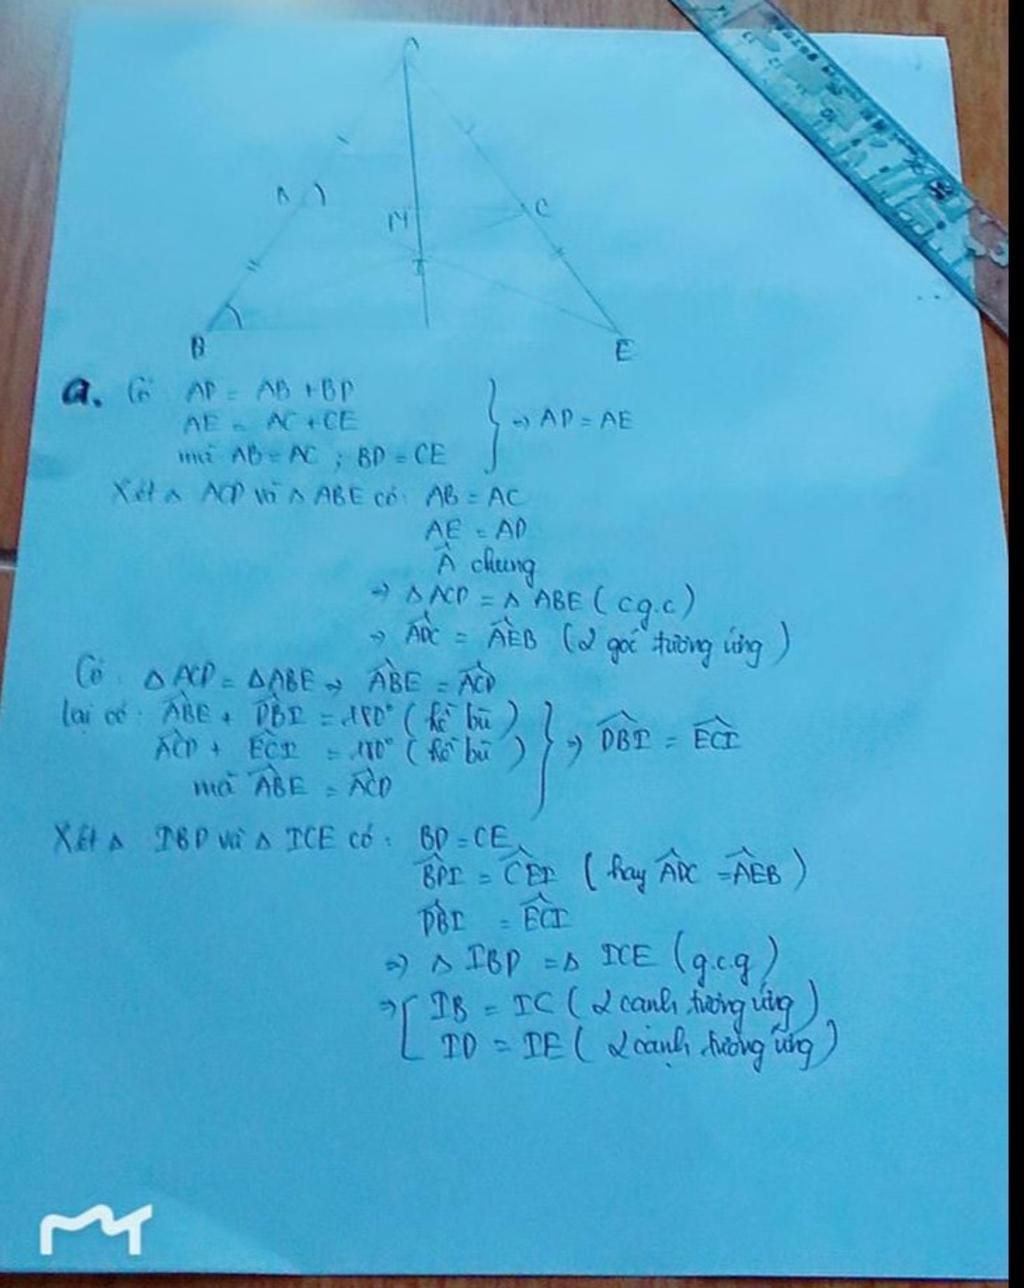 A
B
M
C
I
B
E
a. Có AD = AB + BD
AE = AC + CE
mà AB = AC ; BD = CE
⇒ AD = AE
Xét △ ACD và △ ABE có: AB = AC
AE = AD
Â chung
⇒ △ ACD = △ ABE ( c.g.c )
⇒ ADC^ = AEB^ ( 2 góc tương ứng )
Có △ ACD = △ABE ⇒ ABE^ = ACD^
lại có: ABE^ + DBI^ = 180° ( kề bù )
ACD^ + ECI^ = 180° ( kề bù )
⇒ DBI^ = ECI^
mà ABE^ = ACD^
Xét △ IBD và △ ICE có: BD = CE
BDI^ = CEI^ ( hay ADC^ = AEB^ )
DBI^ = ECI^
⇒ △ IBD = △ ICE ( g.c.g )
⇒ [ IB = IC ( 2 cạnh tương ứng )
ID = IE ( 2 cạnh tương ứng )